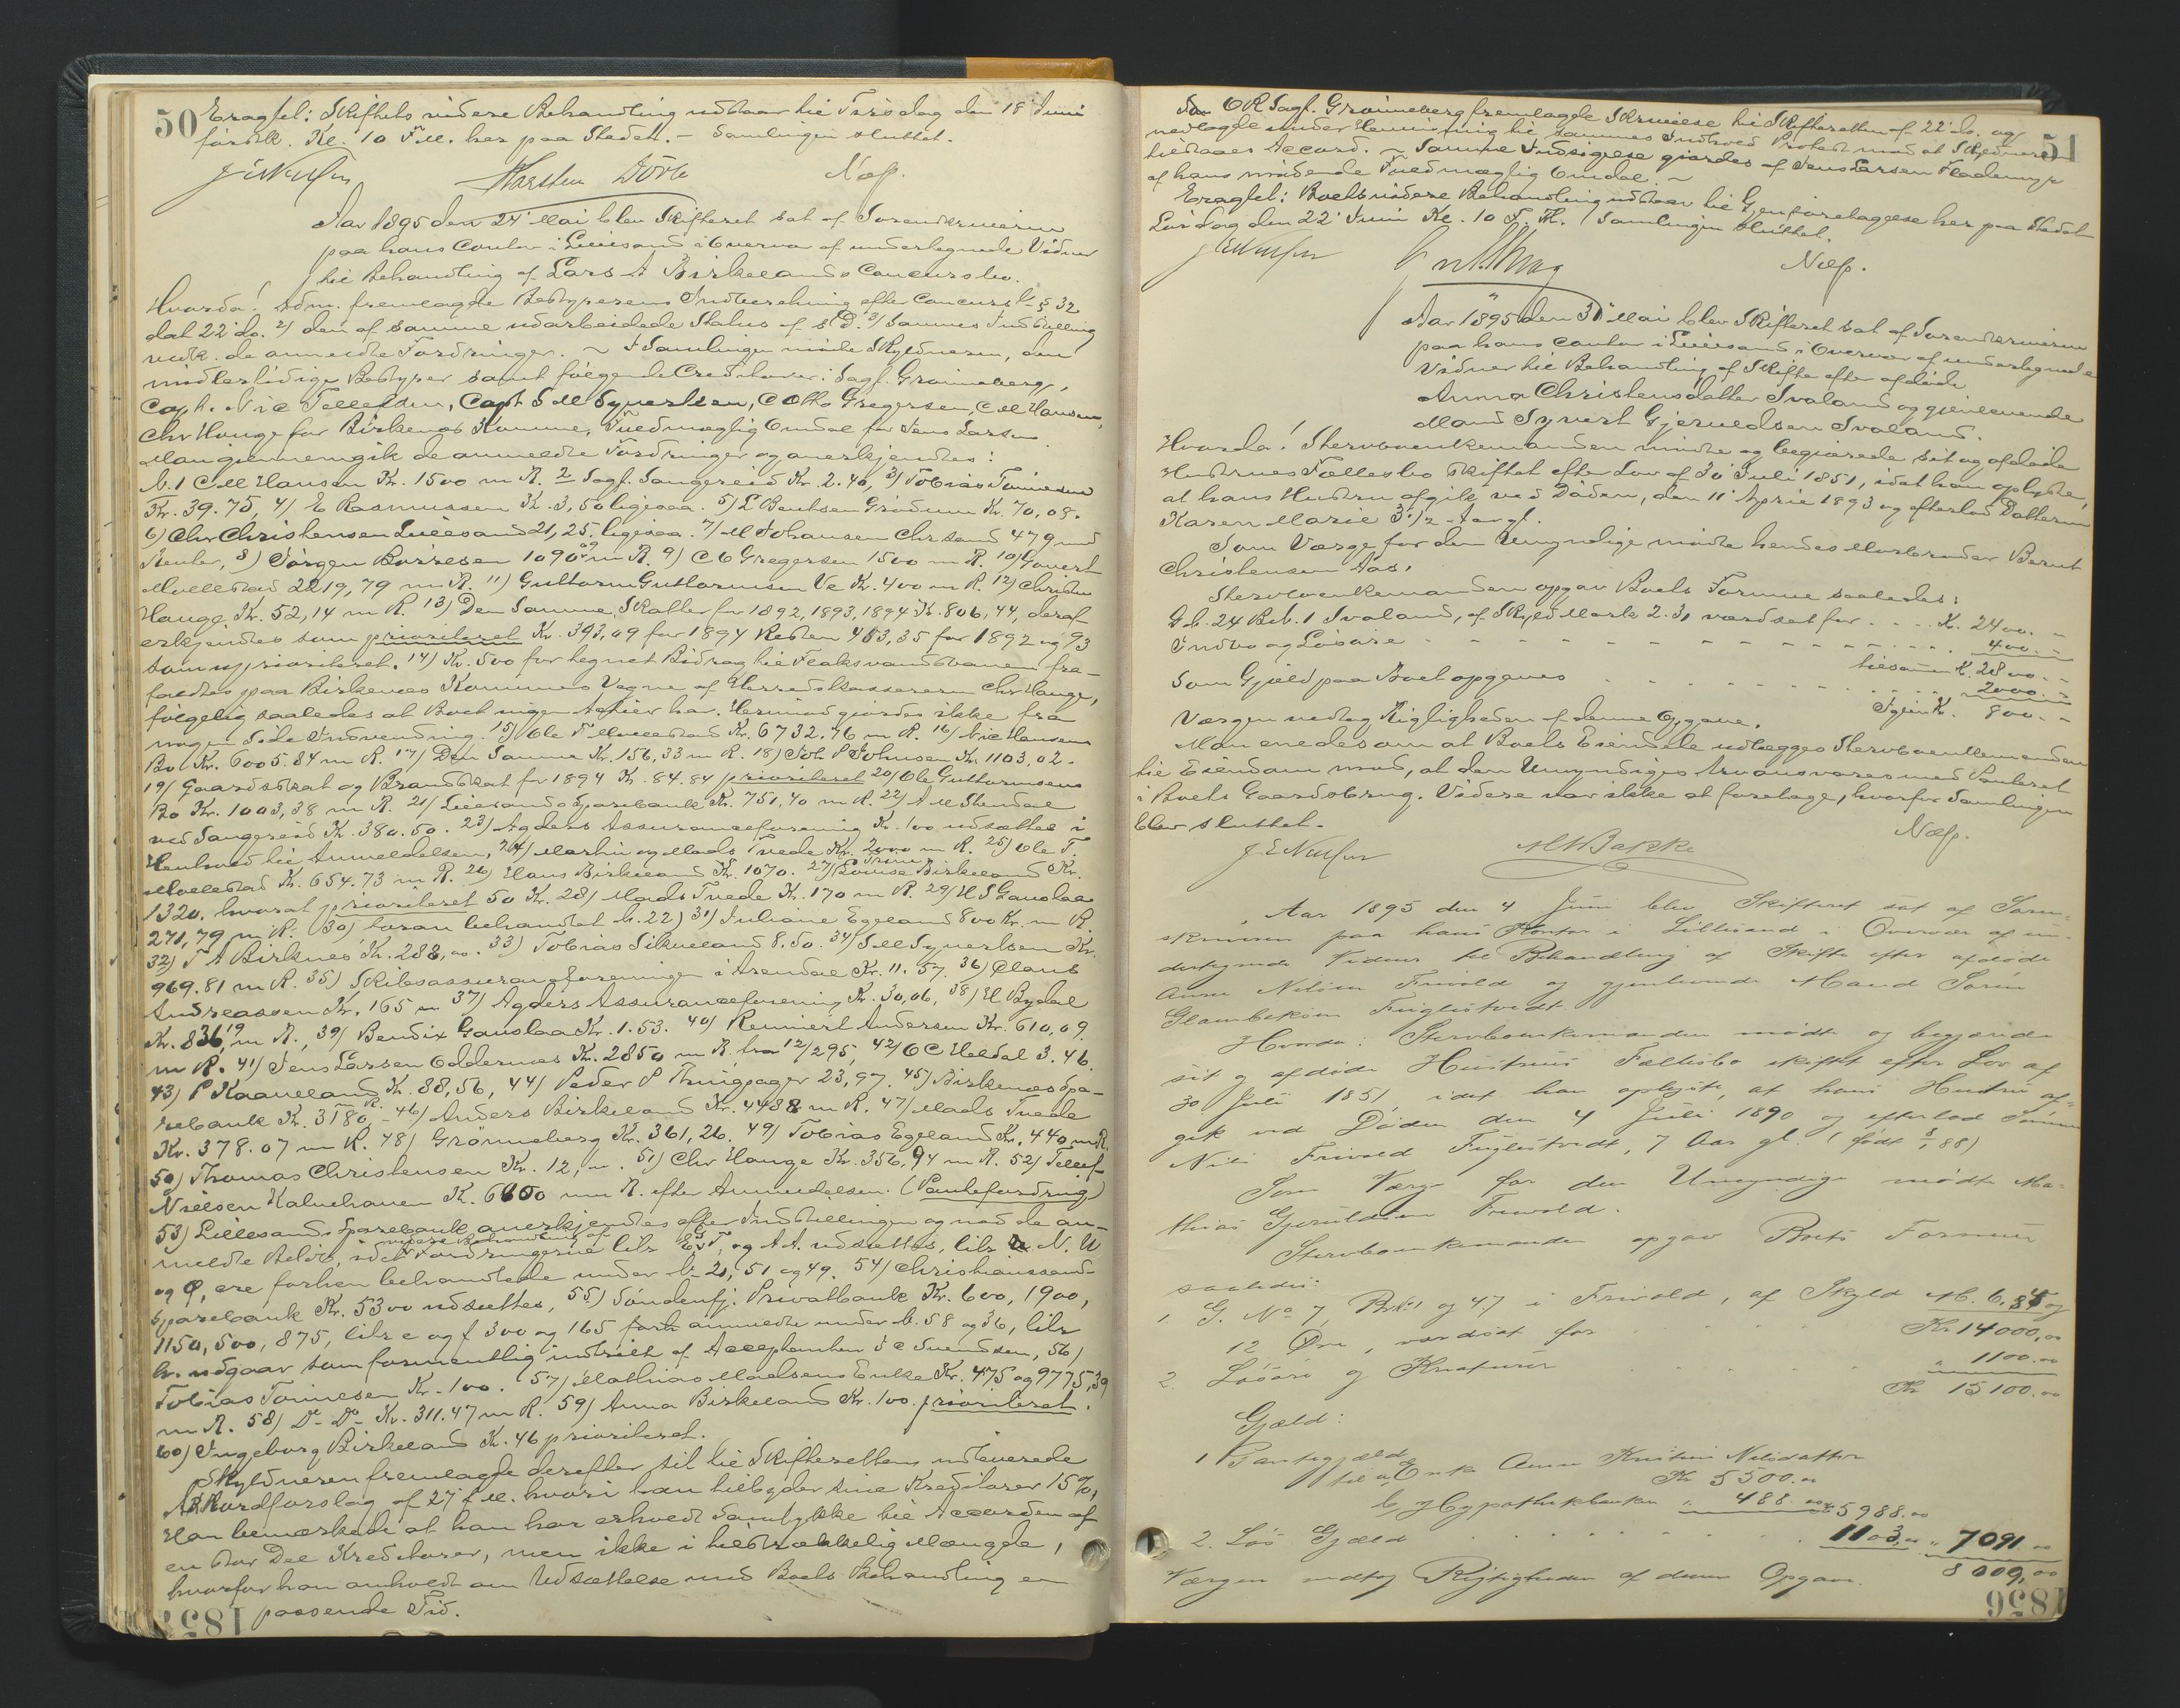 50 Eragtet: Skiftets videre Behandling udstaar til Tirsdag den 18 Juni
førstk. Kl. 10 F.M. her paa Stedet. – Samlingen sluttet.
Karsten Næp.
Aar 1895 den 24 Mai blev Skifteret sat af Sorenskriveren
paa hans Contor i Lillesand i Overvær af undertegnede Vidner
til Behandling af Lars A Birkelands Concursbo.
Hvorda! Adm. fremlagde Bestyrerens Indberetning efter Concursl. § 32
dat 22 ds. 2) den af samme udarbeidede Status af s. D. 3) Sammes Indstilling
vedk. de anmeldte Fordringer. ~ I Samlingen mødte Skyldneren, den
midlertidige Bestyrer samt følgende Creditorer: Sagf. Grønneberg,
Capt. Nic Tellefsen, Capt S M Syvertsen, C Otto Gregersen, C M Hansen,
Chr Hauge for Birkenes Kommune, Fuldmægtig Omdal for Jens Larsen.
Man gjennemgik de anmeldte Fordringer og anerkjendtes:
N. 1 C M Hansen Kr. 1500 m R. 2 Sagf. Sangereid Kr. 2.40, 3) Tobias Tønnesen
Kr. 39.75, 4) E Rasmussen Kr. 3,50 ligesaa. 5) L Bentsen Grødum Kr. 70,08.
6) Chr Christensen Lillesand 21,25. ligesaa. 7) M Johansen Chrsand 479 med
Renter, 8) Jørgen Børresen 1090 m R. 9) C O Gregersen 1500 m R. 10) Govert
Mollestad 2219,79 m R. 11) Guttorm Guttormsen Ve Kr. 400 m R. 12) Christen
Hauge Kr. 52,14 m R. 13) Den Samme, Skatter for 1892, 1893, 1894 Kr. 806,44, deraf
erkjendtes som prioriteret Kr. 393,09 for 1894 Resten 413,35 for 1892 og 93
som uprioriteret. 14) Kr. 500 for tegnet Bidrag til Flaksvandsbanen fra-
faldtes paa Birkenes Kommunes Vegne af Herredskassereren Chr Hauge,
følgelig saaledes at Boet ingen Actier har. Herimod gjordes ikke fra
nogen Side Indvending. 15) Ole T Mollestad Kr. 6732.76 m R. 16) Nic Hansens
Bo Kr. 6005.84 m R. 17) Den Samme Kr. 156,33 m R. 18) Joh P Johnsen Kr. 1103,02.
19) Gaardskat og Brandskat for 1894 Kr. 84.84 prioriteret 20) Ole Guttormsens
Bo Kr. 1003,38 m R. 21) Lillesands Sparebank Kr. 751,40 m R. 22) A M Stendal
ved Sangereid Kr. 380.50. 23) Agders Assuranceforening Kr. 100 udsættes i
Henhold til Anmeldelsen, 24) Marthe og Mads Tvede Kr. 2000 m R. 25) Ole T.
Mollestad Kr. 654.73 m R. 26) Hans Birkeland Kr. 1070. 27) Louise Birkeland Kr.
1320. hvoraf prioriteret 50 Kr. 28) Mads Tvede Kr. 170 m R. 29) H S Gauslaa
271,79 m R. 30) foran behandlet N. 22) 31) Juliane Egeland 800 Kr. m R.
32) T A Birknes Kr. 288,00. 33) Tobias Tilsveland 8.50. 34) S M Syvertsen Kr.
969.81 m R. 35) Skibsassuranceforeningen i Arendal Kr. 11.57. 36) Claus
Andreassen Kr. 165 m 37) Agders Assuranceforening Kr. 30,06, 38) H Bydal
Kr. 836,19 m R., 39) Bendix Gauslaa Kr. 1.53. 40) Reinert Andersen Kr. 610,09.
m R. 41) Jens Larsen Oddernes Kr. 2850 m R. fra 12/2 95, 42) O C Heldal 3.46.
43) P Kaaveland Kr. 88,56, 44) Peder P Thingsager 23,97. 45) Birkenes Spa-
rebank Kr. 3180 m R. 46) Anders Birkeland Kr. 4438 m R. 47) Mads Tvede
Kr. 378.07 m R. 48) Grönneberg Kr. 361,26. 49) Tobias Egeland Kr. 440 m R.
50) Thomas Christensen Kr. 12,00. 51) Chr Hauge Kr. 356,94 m R. 52) Tellef
Nielsen Kalvehaven Kr. 6650 m R. efter Anmeldelsen. (Pantefordring)
53) Lillesands Sparebank anerkjendtes efter Indstillingen og med de an-
meldte Beløb, idet videre Behandling af Fordringerne litr og A A. udsættes, litr N. U
og Q, ere forhen behandlede under N. 21, 51 og 49. 54) Christianssands
Sparebank Kr. 5300 udsættes, 55) Søndenfj. Privatbank Kr. 600, 1900,
1150, 500, 875, litr e og f 300 og 165 anmeldte under N. 58 og 36, litr
h. udgaar som formentlig indfriet af Acceptanten T C Svendsen, 56)
Tobias Tønnesen Kr. 100. 57) Mathias Madsens Enke Kr. 475 og 9775,39
m R. 58) Do Do Kr. 311.47 m R. 59) Anna Birkeland Kr. 100. prioriteret.
60) Ingeborg Birkeland Kr. 46 prioriteret.
Skyldneren fremlagde derefter sit til Skifteretten indleverede
Akkordforslag af 27 f. M. hvori han tilbyder sine Kreditorer 15%,
Han bemærkede at han har erholdt Samtykke til Accorden af
en stor Del Kreditorer, men ikke i tilstrækkelig Mængde,
hvorfor han anholdt om Udsættelse med Boets Behandling en
passende Tid.
51
OR Sagf. Grønneberg fremlagde Skrivelse til Skifteretten af 22 ds. og
nedlagde under Henvisning til sammes Indhold Protest mod at Skyldneren
tilstaaes Accord. ~ Samme Indsigelse gjordes af Jens Larsen
af hans mødende Fuldmægtig Omdal. ~
Eragtet: Boets videre Behandling udstaar til Gjenforetagelse her paa Stedet
Lørdag den 22 Juni Kl. 10 F. M. / Samlingen sluttet.
Næp.
Aar 1895 den 31 Mai blev Skifteret sat af Sorenskriveren
paa hans Contor i Lillesand i Overvær af undertegnede
Vidner til Behandling af Skifte efter afdøde
Anna Christensdatter Svaland og gjenlevende
Mand Syvert Gjeruldsen Svaland.
Hvorda! Stervboenkemanden mødte og begjærede sit og afdøde
Hustrues Fællesbo skiftet efter Lov af 30 Juli 1851, idet han oplyste,
at hans Hustru afgik ved Døden, den 11 April 1893 og efterlod Datteren
Karen Marie 3 1/2 Aar gl.
Som Værge for den Umyndige mødte hendes Morbroder Bernt
Christensen Aas.
Stervboenkemanden opgav Boets Formue saaledes:
G b. 24 B.b. 1 Svaland, af Skyld Mark 2.31 værdsat for . . . . Kr. 2400. –
Indbo og Løsøre . . . . . . 400. –
tilsammen Kr. 2800. –
Som Gjæld paa Boet opgaves . . . . . . 2000. –
Igjen Kr. 800. –
Værgen vedtog Rigtigheden af denne Opgave.
Man enedes om at Boets Eiendele udlægges Stervboenkemanden
til Eiendom mod, at den Umyndiges Arv ansvares med Panteret
i Boets Gaardsbrug. Videre var ikke at foretage, hvorfor Samlingen
blev sluttet.
Næp.
Aar 1895 den 4 Juni blev Skifteret sat af Soren-
skriveren paa hans Kontor i Lillesand i Overvær af un-
dertegnede Vidner til Behandling af Skifte efter afdøde
Anne Nilsen Frivold og gjenlevende Mand Søren
Fuglestvedt.
Hvorda: Stervboenkemanden mødte og begjærede
sit og afdøde Hustrues Fællesbo skiftet efter Lov af
30 Juli 1851, idet han oplyste, at hans Hustru af-
gik ved Døden den 4 Juli 1890 og efterlod Sønnen
Nils Frivold Fuglestvedt, 7 Aar gl. (født 88)
Som Værge for den Umyndige mødte Ma-
thias Gjeruldsen Frivold.
Stervboenkemanden opgav Boets Formue
saaledes:
1. G. No 7, Br. 1 og 47 i Frivold, af Skyld M. 6,84 og
12 Øre, værdsat for Kr 14000,00
2. Løsøre og Kreaturer " 1100.00
Kr 15100.00
Gjæld:
1 Pantegjæld
til a, Enke Anne Kristine Nilsdatter
Kr 5500.00
b, Hypothekbanken " 488.00 Kr 5988.00
2. Løs Gjæld . . . . . 1103,00 " 7091.00
8009,00
Værgen vedtog Rigtigheden af denne Opgave.
1856